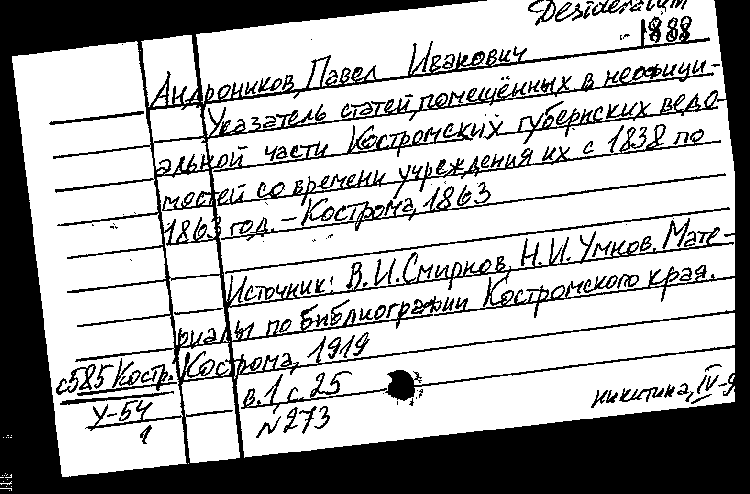 Desideratum
- 1888
Андроников, Павел Иванович
Указатель статей, помещённых в неофици-
альной части Костромских губернских ведо-
мостей со времени учреждения их с 1838 по
1863 год. – Кострома, 1863
Источник: В.И.Смирнов, Н.И.Умнов. Мате-
риалы по библиографии Костромского края.
Кострома, 1919
с585 Костр.
У-54
1
в.1, с.25
N273
никитина, IV-9